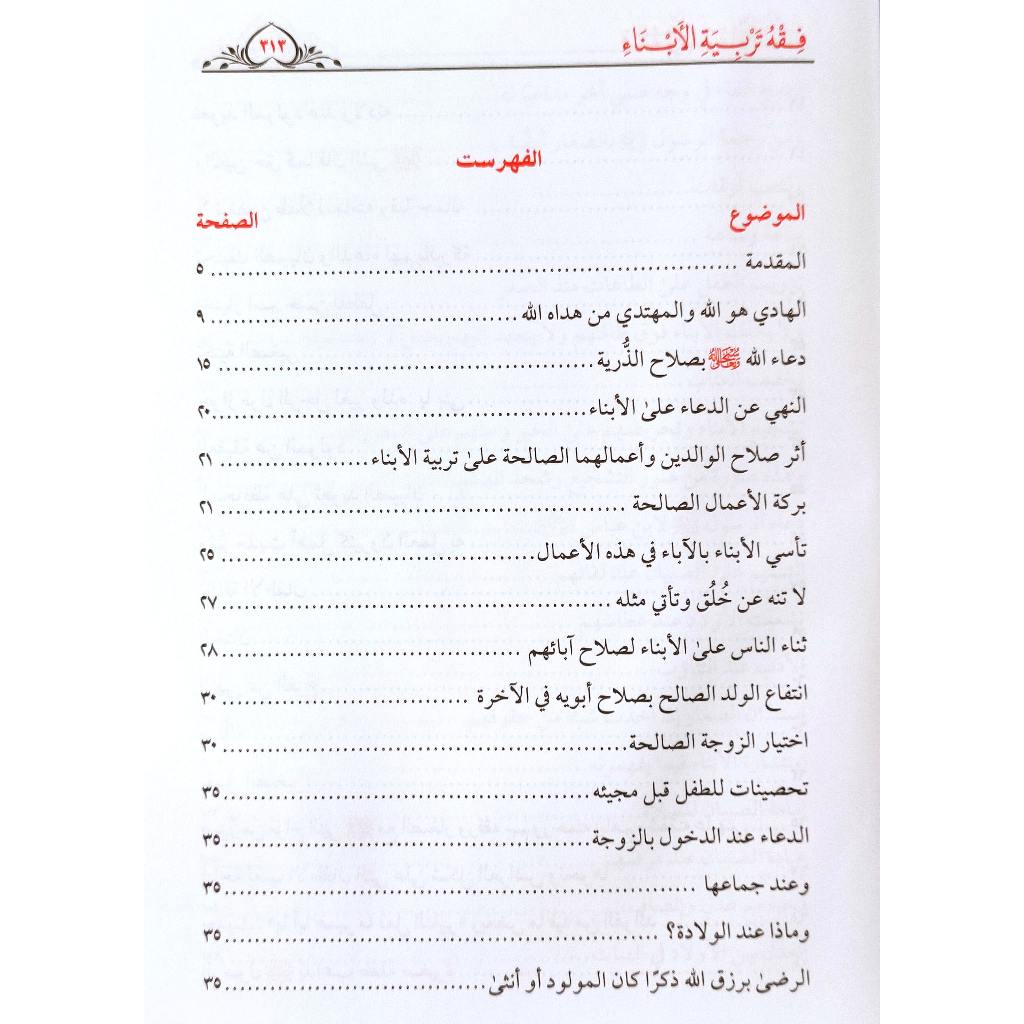 فِقْهُ تَرْبِيَةِ الأَبْنَاءِ ٣١٣
الفهرست
الموضوع الصفحة
المقدمة ................................ ٥
الهادي هو الله والمهتدي من هداه الله ................................ ٩
دعاء الله بصلاح الذُّرية ................................ ١٥
النهي عن الدعاء علىٰ الأبناء ................................ ٢٠
أثر صلاح الوالدين وأعمالهما الصالحة علىٰ تربية الأبناء ................................ ٢١
بركة الأعمال الصالحة ................................ ٢١
تأسي الأبناء بالآباء في هذه الأعمال ................................ ٢٥
لا تنه عن خُلُق وتأتي مثله ................................ ٢٧
ثناء الناس علىٰ الأبناء لصلاح آبائهم ................................ ٢٨
انتفاع الولد الصالح بصلاح أبويه في الآخرة ................................ ٣٠
اختيار الزوجة الصالحة ................................ ٣٠
تحصينات للطفل قبل مجيئه ................................ ٣٥
الدعاء عند الدخول بالزوجة ................................ ٣٥
وعند جماعها ................................ ٣٥
وماذا عند الولادة؟ ................................ ٣٥
الرضىٰ برزق الله ذكرًا كان المولود أو أنثىٰ ................................ ٣٥